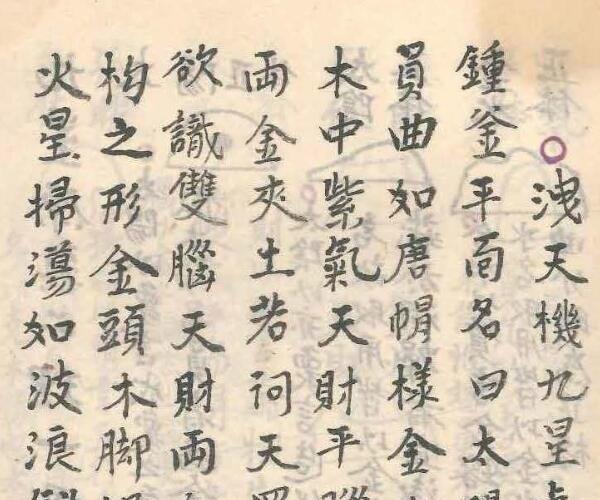 ○洩天機九星
鍾釜平面名曰太陽
員曲如唐帽樣金
木中紫氣天財平腦
両金夾土若祠天罡
欲識雙腦天財両
枸之形金頭木脚
火星掃蕩如波浪